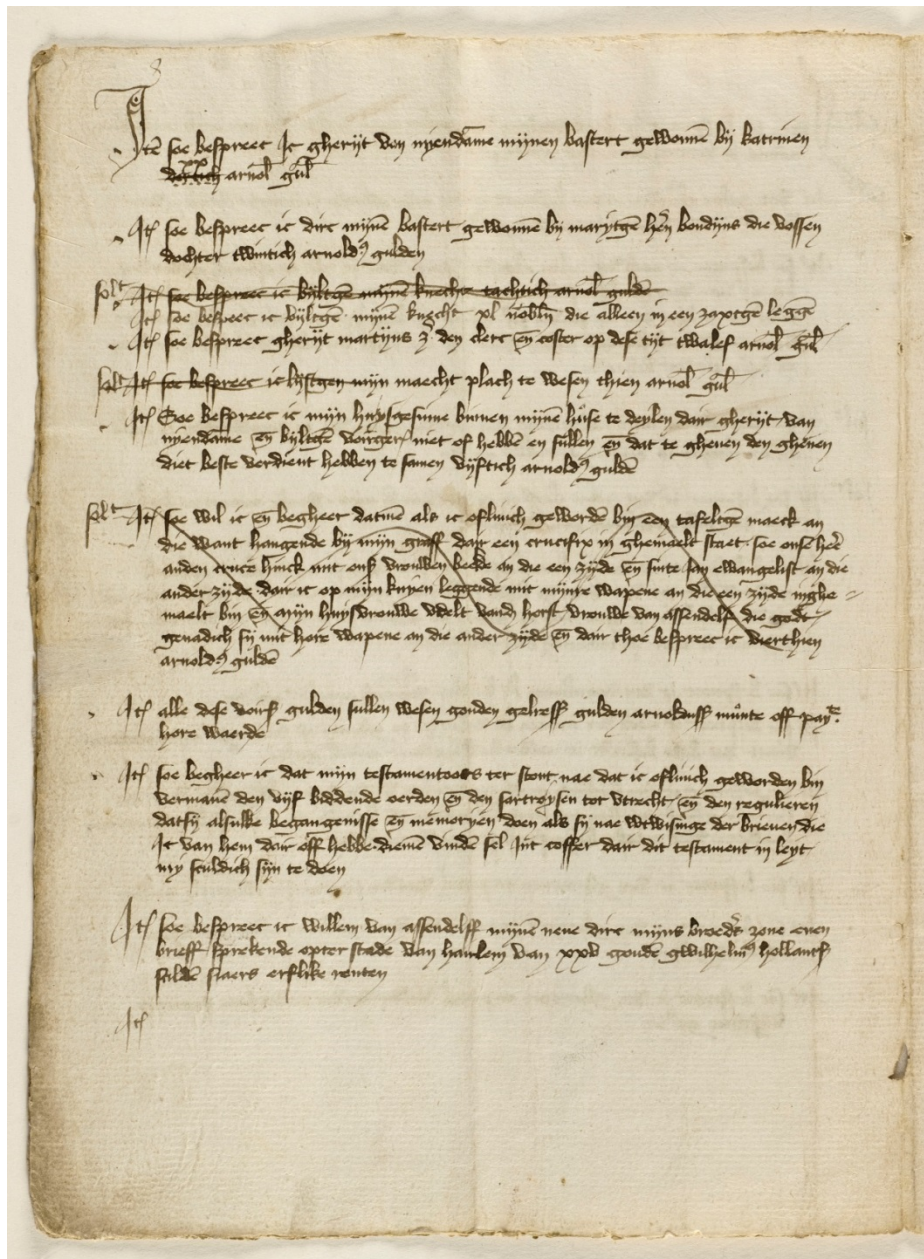 8
Itē soe bespreec Ic gherijt van nyendame mijnen bastert gewonnē bij katrinen
xx
dertich arnol gul
Itē soe bespreec ic dirc mijnē bastert gewonnē bij marijtgē heyn boudijns die vossen
dochter twintich arnoldus gulden
solt Itē soe bespreec ic bijltgē mijnē knecht tachtich arnol guldē
Itē soe bespreec ic bijltgē mijnē knecht xl nobln die alleen in een zaxtgē leggē
Itē soe bespreec gherijt martijns z den clerc eñ coster op dese tijt twalef arnol gul
solt Itē soe bespreec ic lijstgen mijn maecht plach te wesen thien arnol gul
Itē Soe bespreec ic mijn huysgesinne binnen mijnē huse te deylen dair gherijt van
nyendame eñ bijltgē voirger niet of hebbē en sullen eñ dat te gheven den ghenen
diet beste verdient hebben te samen vijftich arnoldus guldē
solt Itē soe wil ic eñ begheer datmē als ic oflivich gewordē bin een tafeltgē maeck an
die want hangende bij mijn graff dair een crucifix in ghemaelt staet soe onse heer
anden cruce hinck mit onser vrouwen beelde an die een zijde eñ sinte jan ewangelist an die
ander zijde dair ic op mijn knyen leggende mit mijnre wapene an die een zijde inghe
maelt bin eñ mijn huysvrouwe vdelt vand horst vrouwe van assendelf die godt
genadich sij mit hoire wapene an die ander zijde eñ dair thoe bespreec ic vierthien
arnoldus guldē
Itē alle dese voirs gulden sullen wesen gouden gelress gulden arnoldus munte off pay
hore waerde
Itē soe begheer ic dat mijn testamentoors ter stont nae dat ic oflivich geworden bin
vermanē den vijf biddende oerden eñ den sartroysen tot vtrecht eñ den regulieren
datsij alsulke begangenisse eñ memoryen doen als sij nae wtwisinge der brieuen die
Ic van hem dair off hebbe diemē vinden sel Int coffer dair dit testament in leyt
mij sculdich sijn te doen
Itē soe bespreec ic willem van assendelff mijnē neue dirc mijns broeders zone enen
brieff sprekende opter stade van hairlem van xxv goudē gwilhelmus hollants
scilden siaers erflike renten
Itē